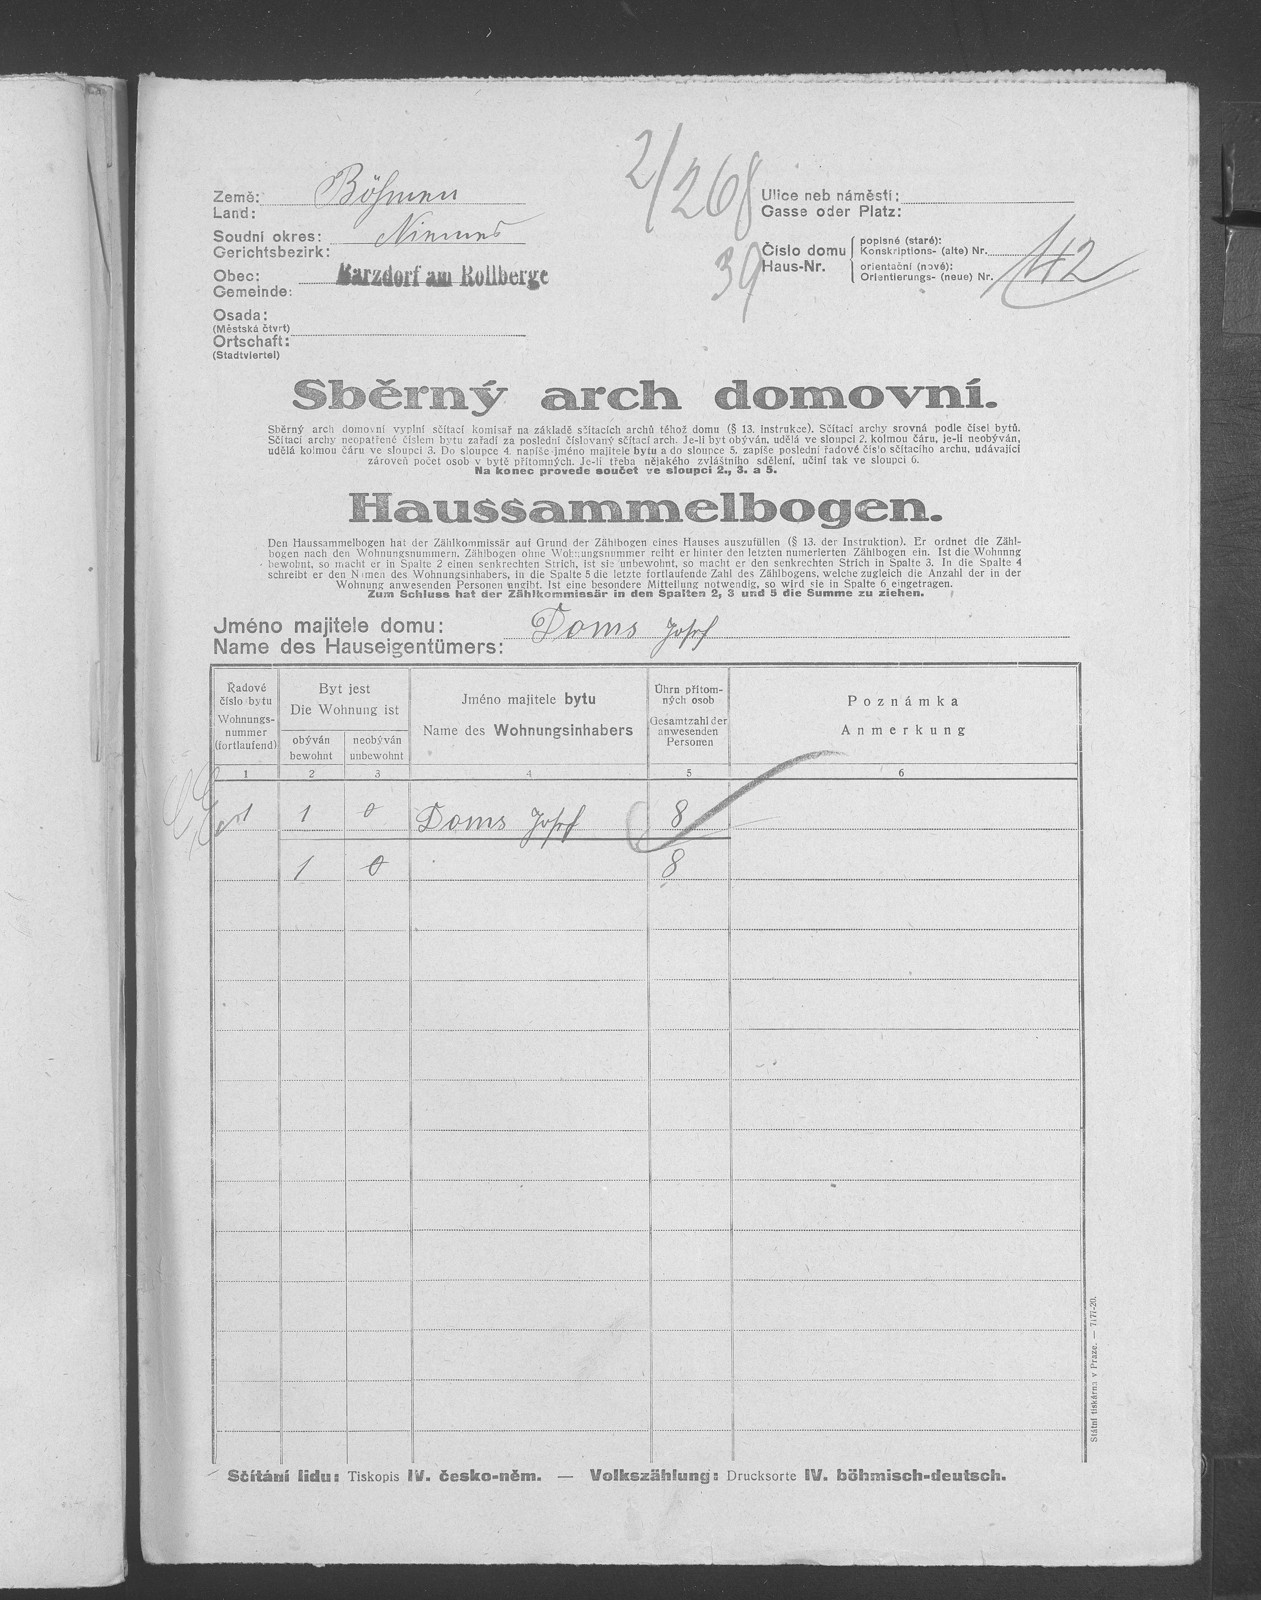 2/268
39
Země: Böhmen
Land:
Soudní okres: Niemes
Gerichtsbezirk:
Obec: Barzdorf am Rollberge
Gemeinde:
Osada:
(Městská čtvrt)
Ortschaft:
(Stadtviertel)
Ulice neb náměstí:
Gasse oder Platz:
Číslo domu
Haus-Nr.
popisné (staré):
Konskriptions- (alte) Nr.
orientační (nové):
Orientierungs- (neue) Nr.
42
Sběrný arch domovní.
Sběrný arch domovní vyplní sčítací komisař na základě sčítacích archů téhož domu (§ 13. instrukce). Sčítací archy srovná podle čísel bytů.
Sčítací archy neopatřené číslem bytu zařadí za poslední číslovaný sčítací arch. Je-li byt obýván, udělá ve sloupci 2. kolmou čáru, je-li neobýván,
udělá kolmou čáru ve sloupci 3. Do sloupce 4. napíše jméno majitele bytu a do sloupce 5. zapíše poslední řadové číslo sčítacího archu, udávající
zároveň počet osob v bytě přítomných. Je-li třeba nějakého zvláštního sdělení, učiní tak ve sloupci 6.
Na konec provede součet ve sloupci 2., 3. a 5.
Haussammelbogen.
Den Haussammelbogen hat der Zählkommissär auf Grund der Zählbogen eines Hauses auszufüllen (§ 13. der Instruktion). Er ordnet die Zähl-
bogen nach den Wohnungsnummern. Zählbogen ohne Wohnungsnummer reiht er hinter den letzten numerierten Zählbogen ein. Ist die Wohnung
bewohnt, so macht er in Spalte 2 einen senkrechten Strich, ist sie unbewohnt, so macht er den senkrechten Strich in Spalte 3. In die Spalte 4
schreibt er den Namen des Wohnungsinhabers, in die Spalte 5 die letzte fortlaufende Zahl des Zählbogens, welche zugleich die Anzahl der in der
Wohnung anwesenden Personen angibt. Ist eine besondere Mitteilung notwendig, so wird sie in Spalte 6 eingetragen.
Zum Schluss hat der Zählkommissär in den Spalten 2, 3 und 5 die Summe zu ziehen.
Jméno majitele domu: Doms Josef
Name des Hauseigentümers:
Řadové
číslo bytu
Wohnungs-
nummer
(fortlaufend)
Byt jest
Die Wohnung ist
obýván
bewohnt
neobýván
unbewohnt
Jméno majitele bytu
Name des Wohnungsinhabers
Úhrn přítom-
ných osob
Gesamtzahl der
anwesenden
Personen
Poznámka
Anmerkung
1 2 3 4 5 6
1 1 0 Doms Josef 8
1 0 8
Státní tiskárna v Praze. — 7177-20.
Sčítání lidu: Tiskopis IV. česko-něm. — Volkszählung: Drucksorte IV. böhmisch-deutsch.